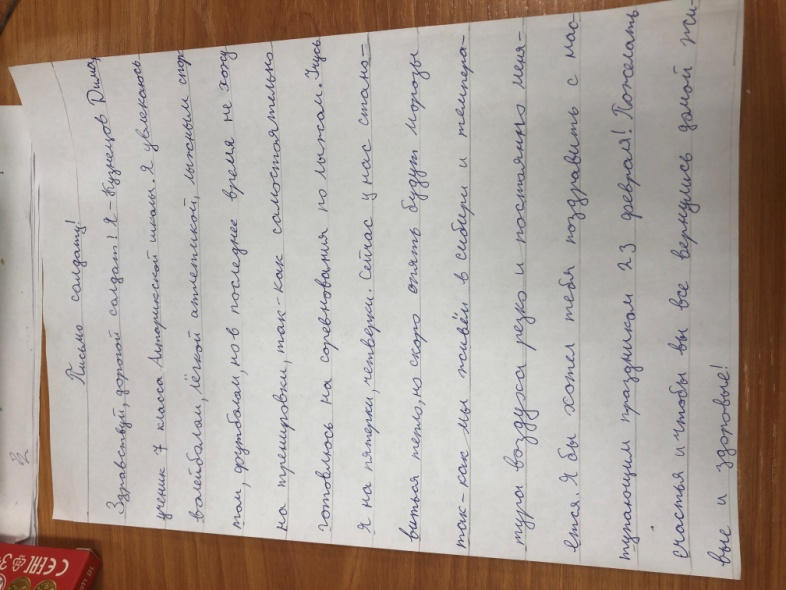 Письмо солдату!
Здравствуй, дорогой солдат! Я - Кузнецов Дима,
ученик 7 класса школы. Я увлекаюсь
волейболом, лёгкой атлетикой, лыжным спор
том, футболом, но в последнее время не хожу
на тренировки, так-как самостоятельно
готовлюсь на соревнования по лыжам. Учусь
я на пятерки, четверки. Сейчас у нас стано-
виться тепло, но скоро опять будут морозы
так-как мы живём в сибири и темпера-
тура воздуха резко и постоянно меня-
ется. Я бы хотел тебя поздравить с нас-
тупающим праздником 23 февраля! Пожелать
счастья и чтобы вы все вернулись домой жи-
вые и здоровые!
CE EAC 0-3